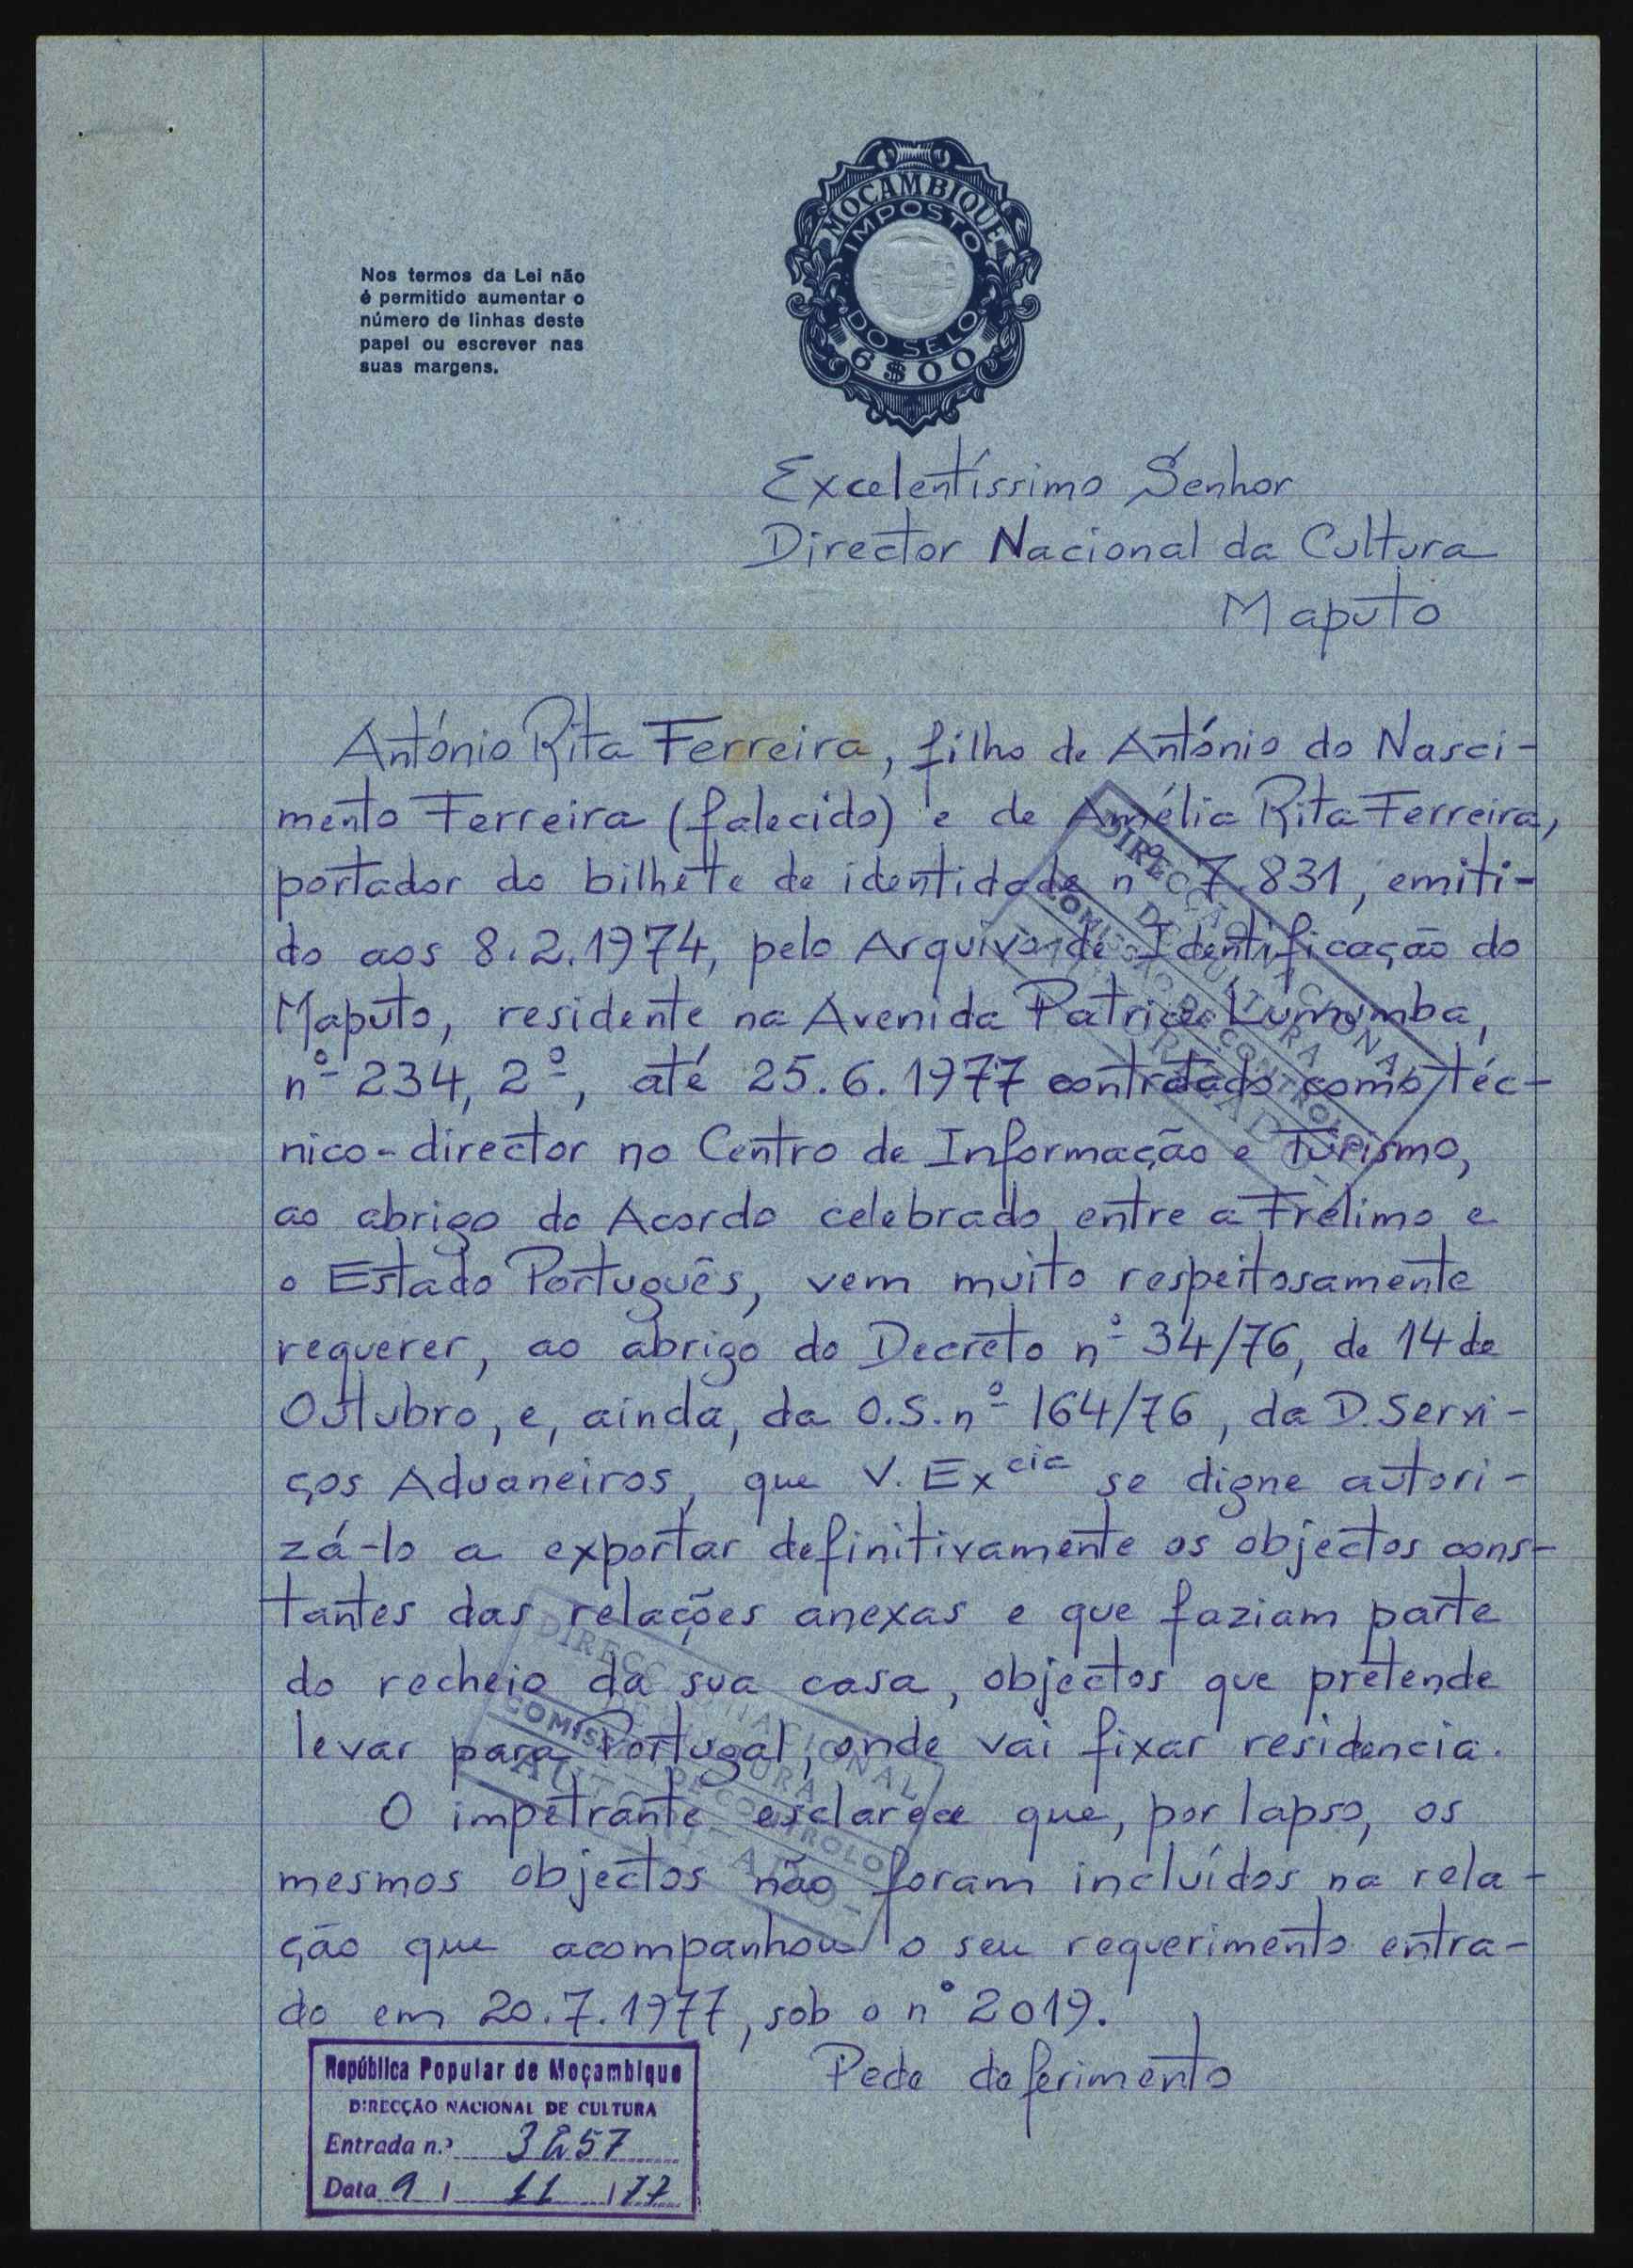 MOÇAMBIQUE
IMPOSTO
DO SELO
6$00
Nos termos da Lei não
é permitido aumentar o
número de linhas deste
papel ou escrever nas
suas margens.
Excelentíssimo Senhor
Director Nacional da Cultura
Maputo
António Rita Ferreira, filho de António do Nasci-
mento Ferreira (falecido) e de Amélia Rita Ferreira,
portador do bilhete de identidade nº 7.831, emiti-
do aos 8.2.1974, pelo Arquivo de Identificação do
Maputo, residente na Avenida Patrice Lumumba,
nº 234, 2º, até 25.6.1977 contratado como téc-
nico-director no Centro de Informação e Turismo,
ao abrigo do Acordo celebrado entre a Frelimo e
o Estado Português, vem muito respeitosamente
requerer, ao abrigo do Decreto nº 34/76, de 14 de
Outubro, e, ainda, da O.S. nº 164/76, da D. Servi-
ços Aduaneiros, que V. Excia se digne autori-
zá-lo a exportar definitivamente os objectos cons-
tantes das relações anexas e que faziam parte
do recheio da sua casa, objectos que pretende
levar para Portugal, onde vai fixar residencia.
O impetrante esclarece que, por lapso, os
mesmos objectos não foram incluídos na rela-
ção que acompanhou o seu requerimento entra-
do em 20.7.1977, sob o nº 2019.
Pede deferimento
DIRECÇÃO NACIONAL
DE CULTURA
COMISSÃO DE CONTROLO
DIRECÇÃO NACIONAL
DE CULTURA
COMISSÃO DE CONTROLO
República Popular de Moçambique
DIRECÇÃO NACIONAL DE CULTURA
Entrada n.º 3257
Data 9 / 11 / 77